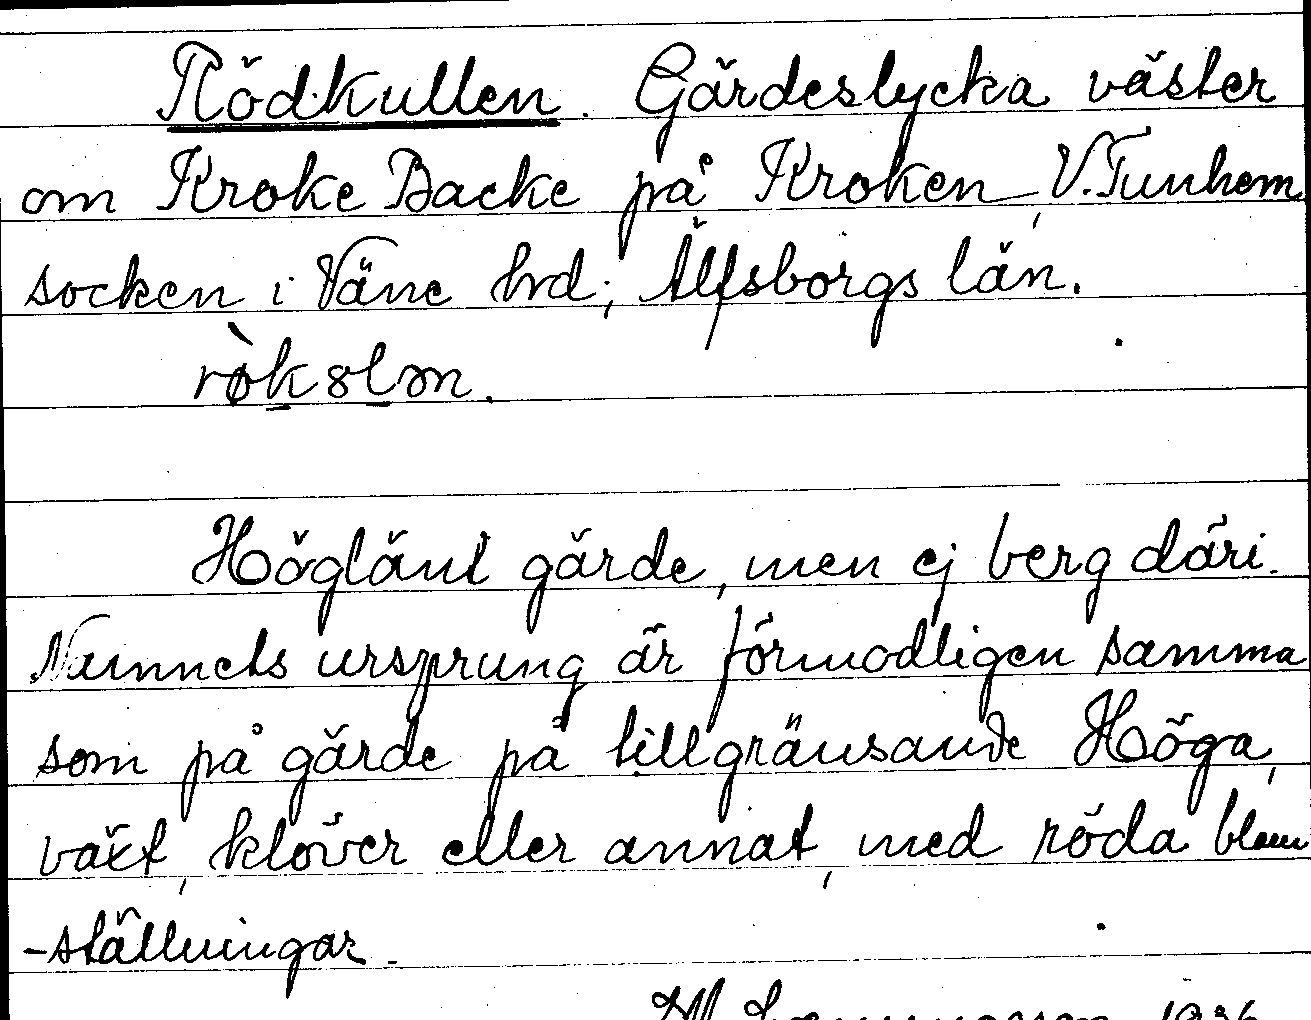 Rödkullen. Gärdeslycka väster
om Kroke Backe på Kroken, V. Tunhem
socken i Väne hrd; Älfsborgs län.
Högländt gärde, men ej berg däri.
Namnets ursprung är förmodligen samma
som på gärde på tillgränsande Höga,
växt, klöver eller annat, med röda blom
-ställningar.
1936